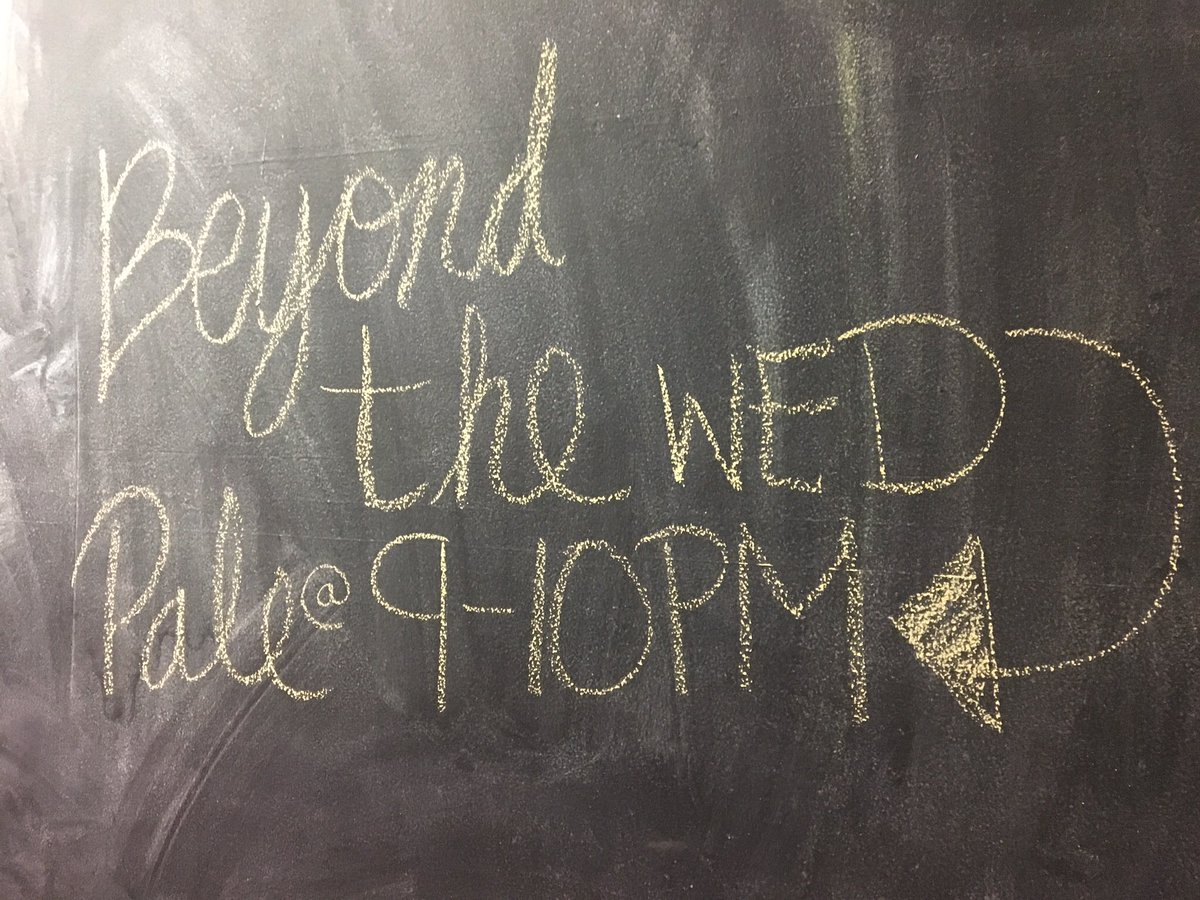 Beyond
the WED
Pale @ 9-10PM